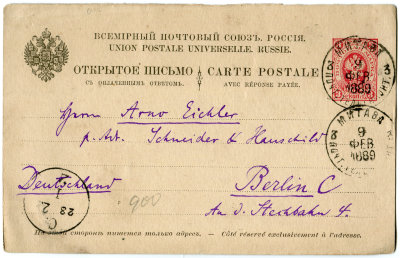 ВСЕМІРНЫЙ ПОЧТОВЫЙ СОЮЗЪ. РОССІЯ.
UNION POSTALE UNIVERSELLE. RUSSIE.
ОТКРЫТОЕ ПИСЬМО
CARTE POSTALE
СЪ ОПЛАЧЕННЫМЪ ОТВѢТОМЪ.
AVEC RÉPONSE PAYÉE.
МИТАВА
9
ФЕВ
1889
МИТАВА
9
ФЕВ
1889
Herrn Arno Eichler
p. Adr. Schneider & Hauschild
Deutschland
Berlin C
An d. Stechbahn 4.
23
2
900
На этой сторонѣ пишется только адресъ. — Côté réservé exclusivement à l'adresse.